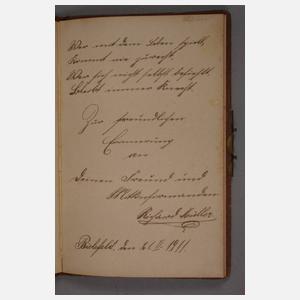 Wer mit dem Leben spielt,
Kommt nie zurecht.
Wer sich nicht selbst befiehlt,
Bleibt immer Knecht.
Zur freundlichen
Erinnerung
an
Deinen Freund und
Mitkonfirmanden
Richard Müller
Bielefeld, den 1911